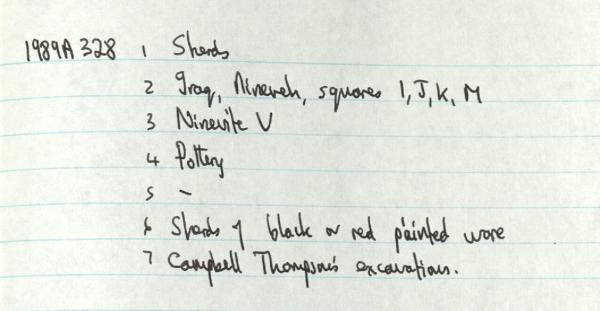 1989A 328 1 Sherds
2 Iraq, Nineveh, squares I, J, K, M
3 Ninevite V
4 Pottery
5 -
6 Sherds of black or red painted ware
7 Campbell Thompson's excavations.